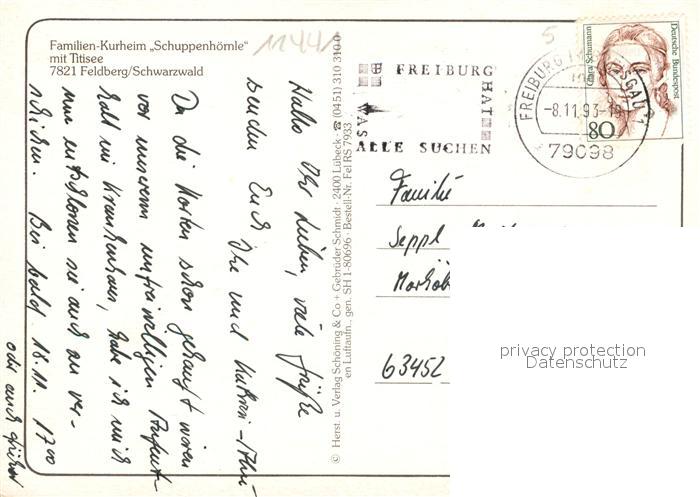 Familien-Kurheim „Schuppenhörnle"
mit Titisee
7821 Feldberg/Schwarzwald
11441
5
Hallo Ihr Lieben, viele Grüße
senden Euch Ute und
Da die Karten schon gekauft waren
vor unserem unfreiwilligen
halt im Krankenhaus, habe ich mich
nun entschlossen sie auch zu ver-
schicken. Bis bald 18.11. 17 00
oder auch früher
© Herst. u. Verlag Schöning & Co + Gebrüder Schmidt · 2400 Lübeck · ☎ (0451) 310 310-0
en Luftaufn.. gen. SH 1-80696 · Bestell-Nr. Fel RS 7933
FREIBURG
HAT
WAS
ALLE SUCHEN
FREIBURG
-8.11.93-19
79098
Clara Schumann
Deutsche Bundespost
80
Familie
Seppl
63452
privacy protection
Datenschutz